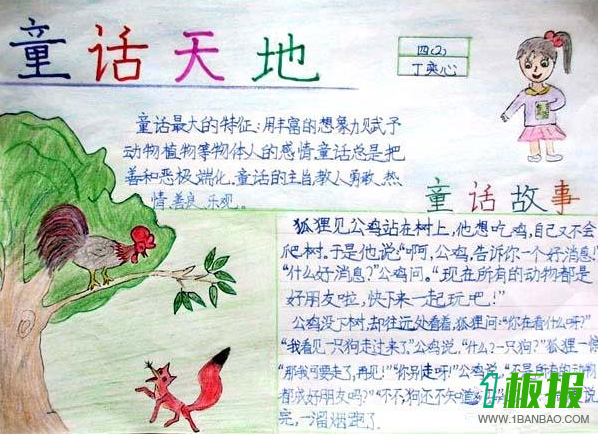 童话天地
四(2)
丁奕心
童话最大的特征:用丰富的想象力赋予
动物植物等物体人的感情,童话总是把
善和恶极端化,童话的主旨教人勇敢、热
情、善良、乐观。
童话故事
狐狸见公鸡站在树上,他想吃鸡,自己又不会
爬树。于是他说:“啊,公鸡,告诉你一个好消息!”
“什么好消息?”公鸡问。“现在所有的动物都是
好朋友啦,快下来一起玩吧!”
公鸡没下树,却往远处看着,狐狸问:“你在看什么呀?”
“我看见一只狗走过来了。”公鸡说。“什么?一只狗?”狐狸一惊
“那我可要走了,再见!”“你别走呀!”公鸡说,“不是所有的动物
都成好朋友吗?”“不,不,狗还不知道
完,一溜烟跑了。
1板报
WWW.1BANBAO.COM